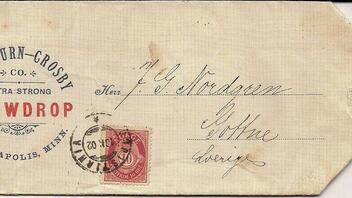 URN-CROSBY
CO.
TRA STRONG
WDROP
APOLIS, MINN.
Herr J. G. Nordgren
Gottne
Sverige